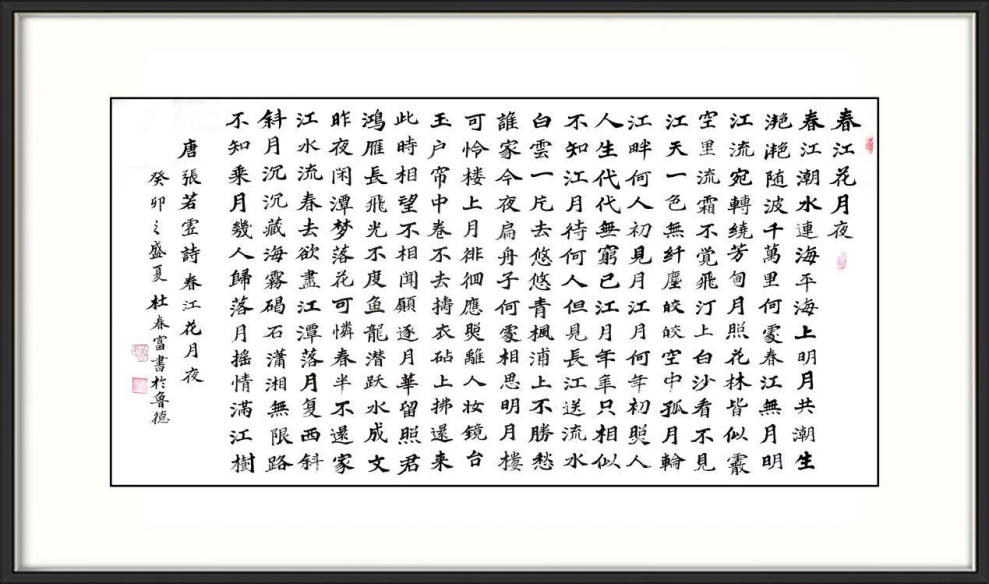 春江花月夜
春江潮水連海平海上明月共潮生
滟滟随波千萬里何處春江無月明
江流宛轉繞芳甸月照花林皆似霰
空里流霜不觉飛汀上白沙看不見
江天一色無纤塵皎皎空中孤月輪
江畔何人初見月江月何年初照人
人生代代無窮已江月年年只相似
不知江月待何人但見長江送流水
白雲一片去悠悠青楓浦上不勝愁
誰家今夜扁舟子何處相思明月樓
可怜楼上月徘徊應照離人妆鏡台
玉户帘中卷不去擣衣砧上拂還来
此時相望不相聞願逐月華留照君
鴻雁長飛光不度鱼龍潜跃水成文
昨夜闲潭梦落花可憐春半不還家
江水流春去欲盡江潭落月复西斜
斜月沉沉藏海霧碣石潇湘無限路
不知乘月幾人歸落月摇情滿江樹
唐張若虚詩春江花月夜
癸卯之盛夏杜春富書於鲁德